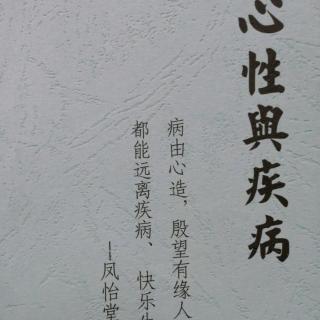 心性與疾病
病由心造，殷望有缘人
都能远离疾病、快乐生
--凤怡堂